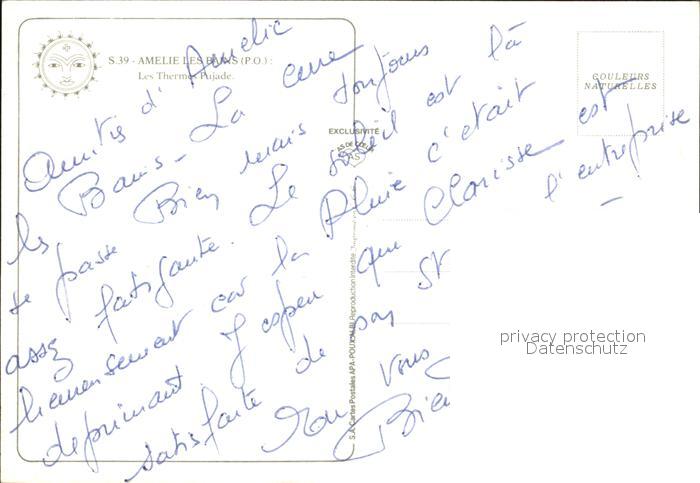 S.39 - AMELIE LES BAINS (P.O.) :
Les Thermes Pujade.
COULEURS
NATURELLES
EXCLUSIVITÉ
AS DE CŒUR
AS
S.A. Cartes Postales APA-POUX-ALBI Reproduction Interdite
Amitiés d'Amélie
les Bains - La cure
se passe Bien mais toujours
assez fatigante. Le soleil est là
heureusement car la Pluie c'était
déprimant. J'espère que Clarisse est
satisfaite de son St l'entreprise !
vous
Bien
privacy protection
Datenschutz